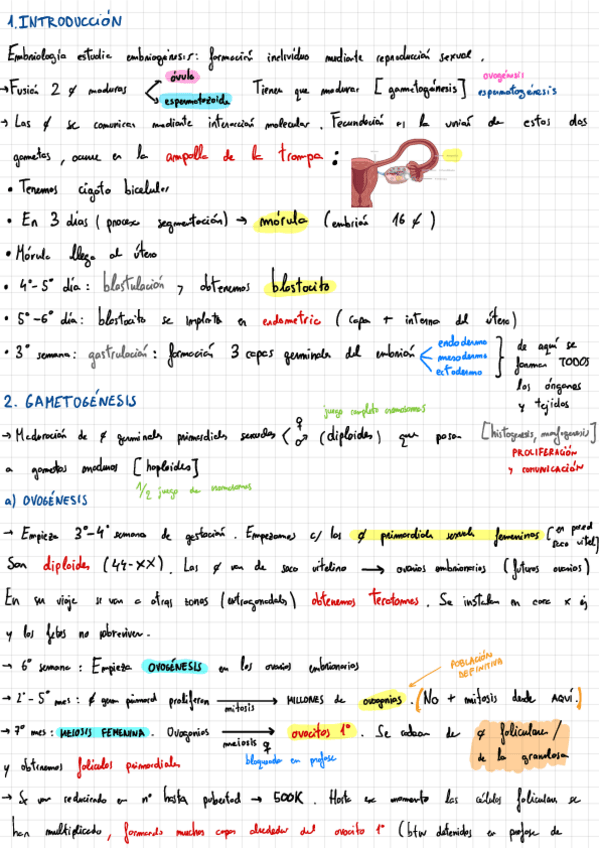 1. INTRODUCCIÓN
Embriología estudia embriogénesis: formación individuo mediante reproducción sexual.
→ Fusión 2 ⊄ maduras < óvulo espermatozoide Tienen que madurar [gametogénesis] ovogénesis espermatogénesis
→ Las ⊄ se comunican mediante interacción molecular. Fecundación es la unión de estos dos
gametos, ocurre en la ampolla de la trompa:
• Tenemos cigoto bicelular
• En 3 días (proceso segmentación) → mórula (embrión 16 ⊄)
• Mórula llega al útero
• 4º-5º día: blastulación, obtenemos blastocito
• 5º-6º día: blastocito se implanta en endometrio (capa + interna del útero)
• 3ª semana: gastrulación: formación 3 capas germinales del embrión < endodermo mesodermo ectodermo } de aquí se forman TODOS los órganos y tejidos
[histogenesis, morfogenesis]
PROLIFERACIÓN y COMUNICACIÓN
2. GAMETOGÉNESIS
juego completo cromosomas
→ Maduración de ⊄ germinales primordiales sexuales < ♀ ♂ (diploides) que pasan
a gametos maduros [haploides]
1/2 juego de cromosomas
a) OVOGÉNESIS
→ Empieza 3ª-4ª semana de gestación. Empezamos c/ las ⊄ primordiales sexuales femeninas (en pared saco vitel)
Son diploides (44-XX). Las ⊄ van de saco vitelino → ovarios embrionarios (futuros ovarios)
En su viaje si van a otras zonas (extragonadales) obtenemos teratomas. Se instalan en cara x ej
y los fetos no sobreviven.
→ 6ª semana: Empieza OVOGÉNESIS en los ovarios embrionarios
POBLACIÓN DEFINITIVA
→ 2º-5º mes: ⊄ germ primord proliferan → mitosis MILLONES de ovogonias. (No + mitosis desde AQUÍ.)
→ 7º mes: MEIOSIS FEMENINA. Ovogonias → meiosis ♀ ovocitos 1º. Se rodean de ⊄ foliculares / de la granulosa
bloqueado en profase
y obtenemos folículos primordiales
→ Se van reduciendo en nº hasta pubertad → 500K. Hasta ese momento las células foliculares se
han multiplicado, formando muchas capas alrededor del ovocito 1º (btw detenidos en profase de